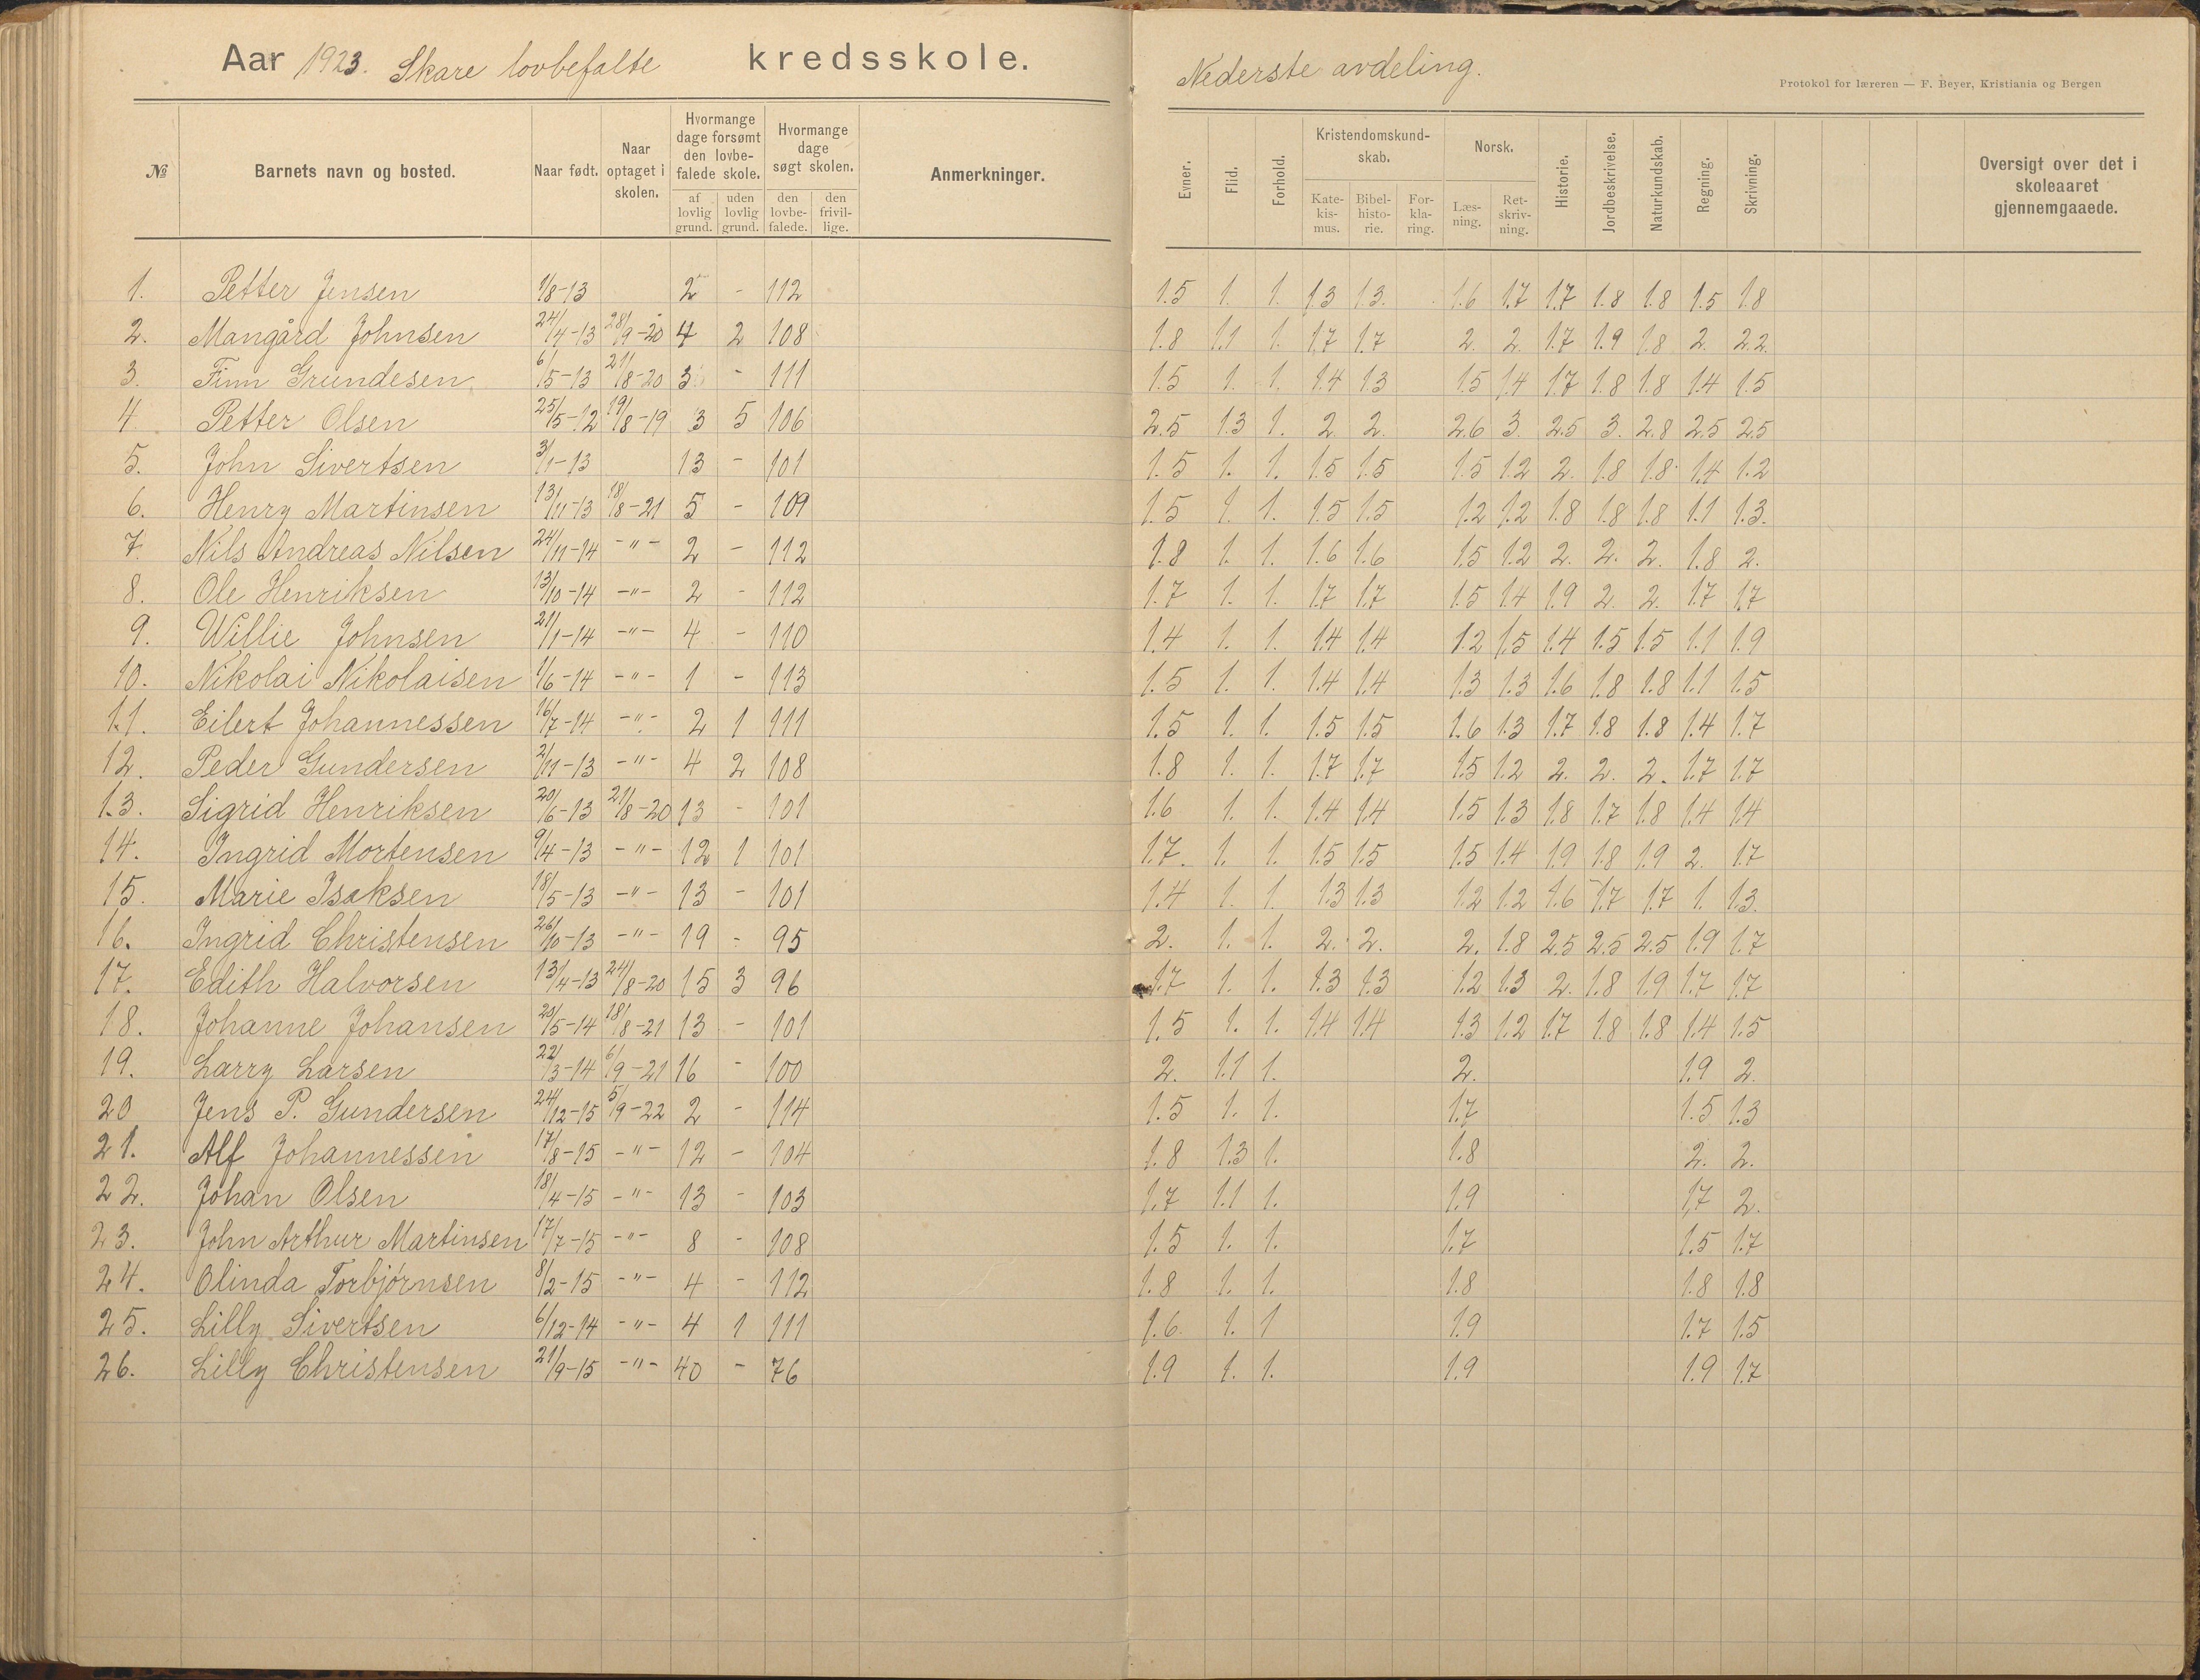 Aar 1923. Skare lovbefalte kredsskole. Nederste avdeling.
Protokol for læreren — F. Beyer, Kristiania og Bergen
№ Barnets navn og bosted. Naar født. Naar optaget i skolen. Hvormange dage forsømt den lovbefalede skole. af lovlig grund. uden lovlig grund. Hvormange dage søgt skolen. den lovbefalede. den frivillige. Anmerkninger. Evner. Flid. Forhold. Kristendomskundskab. Katekismus. Bibelhistorie. Forklaring. Norsk. Læsning. Retskrivning. Historie. Jordbeskrivelse. Naturkundskab. Regning. Skrivning. Oversigt over det i skoleaaret gjennemgaaede.
1. Petter Jensen 1/8-13 2 - 112 1.5 1. 1. 1.3 1.3. 1.6 1.7 1.7 1.8 1.8 1.5 1.8
2. Mangård Johnsen 24/4-13 28/9-20 4 2 108 1.8 1.1 1. 1.7 1.7 2. 2. 1.7 1.9 1.8 2. 2.2.
3. Finn Grundesen 6/5-13 21/8-20 3 - 111 1.5 1. 1. 1.4 1.3 1.5 1.4 1.7 1.8 1.8 1.4 1.5
4. Petter Olsen 25/5-12 19/8-19 3 5 106 2.5 1.3 1. 2. 2. 2.6 3. 2.5 3. 2.8 2.5 2.5
5. John Sivertsen 3/1-13 13 - 101 1.5 1. 1. 1.5 1.5 1.5 1.2 2. 1.8 1.8 1.4 1.2
6. Henry Martinsen 13/11-13 18/8-21 5 - 109 1.5 1. 1. 1.5 1.5 1.2 1.2 1.8 1.8 1.8 1.1 1.3.
7. Nils Andreas Nilsen 24/11-14 -"- 2 - 112 1.8 1. 1. 1.6 1.6 1.5 1.2 2. 2. 2. 1.8 2.
8. Ole Henriksen 13/10-14 -"- 2 - 112 1.7 1. 1. 1.7 1.7 1.5 1.4 1.9 2. 2. 1.7 1.7
9. Willie Johnsen 21/1-14 -"- 4 - 110 1.4 1. 1. 1.4 1.4 1.2 1.5 1.4 1.5 1.5 1.1 1.9
10. Nikolai Nikolaisen 1/6-14 -"- 1 - 113 1.5 1. 1. 1.4 1.4 1.3 1.3 1.6 1.8 1.8 1.1 1.5
11. Eilert Johannessen 16/7-14 -"- 2 1 111 1.5 1. 1. 1.5 1.5 1.6 1.3 1.7 1.8 1.8 1.4 1.7
12. Peder Gundersen 2/11-13 -"- 4 2 108 1.8 1. 1. 1.7 1.7 1.5 1.2 2. 2. 2. 1.7 1.7
13. Sigrid Henriksen 20/6-13 21/8-20 13 - 101 1.6 1. 1. 1.4 1.4 1.5 1.3 1.8 1.7 1.8 1.4 1.4
14. Ingrid Mortensen 9/4-13 -"- 12 1 101 1.7. 1. 1. 1.5 1.5 1.5 1.4 1.9 1.8 1.9 2. 1.7
15. Marie Isaksen 18/5-13 -"- 13 - 101 1.4 1. 1. 1.3 1.3 1.2 1.2 1.6 1.7 1.7 1. 1.3.
16. Ingrid Christensen 26/10-13 -"- 19 - 95 2. 1. 1. 2. 2. 2. 1.8 2.5 2.5 2.5 1.9 1.7
17. Edith Halvorsen 13/4-13 24/8-20 15 3 96 1.7 1. 1. 1.3 1.3 1.2 1.3 2. 1.8 1.9 1.7 1.7
18. Johanne Johansen 20/5-14 18/8-21 13 - 101 1.5 1. 1. 1.4 1.4 1.3 1.2 1.7 1.8 1.8 1.4 1.5
19. Larry Larsen 22/3-14 6/9-21 16 - 100 2. 1.1 1. 2. 1.9 2.
20 Jens P. Gundersen 24/12-15 5/9-22 2 - 114 1.5 1. 1. 1.7 1.5 1.3
21. Alf Johannessen 17/8-15 -"- 12 - 104 1.8 1.3 1. 1.8 2. 2.
22. Johan Olsen 18/4-15 -"- 13 - 103 1.7 1.1 1. 1.9 1.7 2.
23. John Arthur Martinsen 17/7-15 -"- 8 - 108 1.5 1. 1. 1.7 1.5 1.7
24. Olinda Torbjørnsen 8/2-15 -"- 4 - 112 1.8 1. 1. 1.8 1.8 1.8
25. Lilly Sivertsen 6/12-14 -"- 4 1 111 1.6 1. 1 1.9 1.7 1.5
26. Lilly Christensen 21/9-15 -"- 40 - 76 1.9 1. 1. 1.9 1.9 1.7